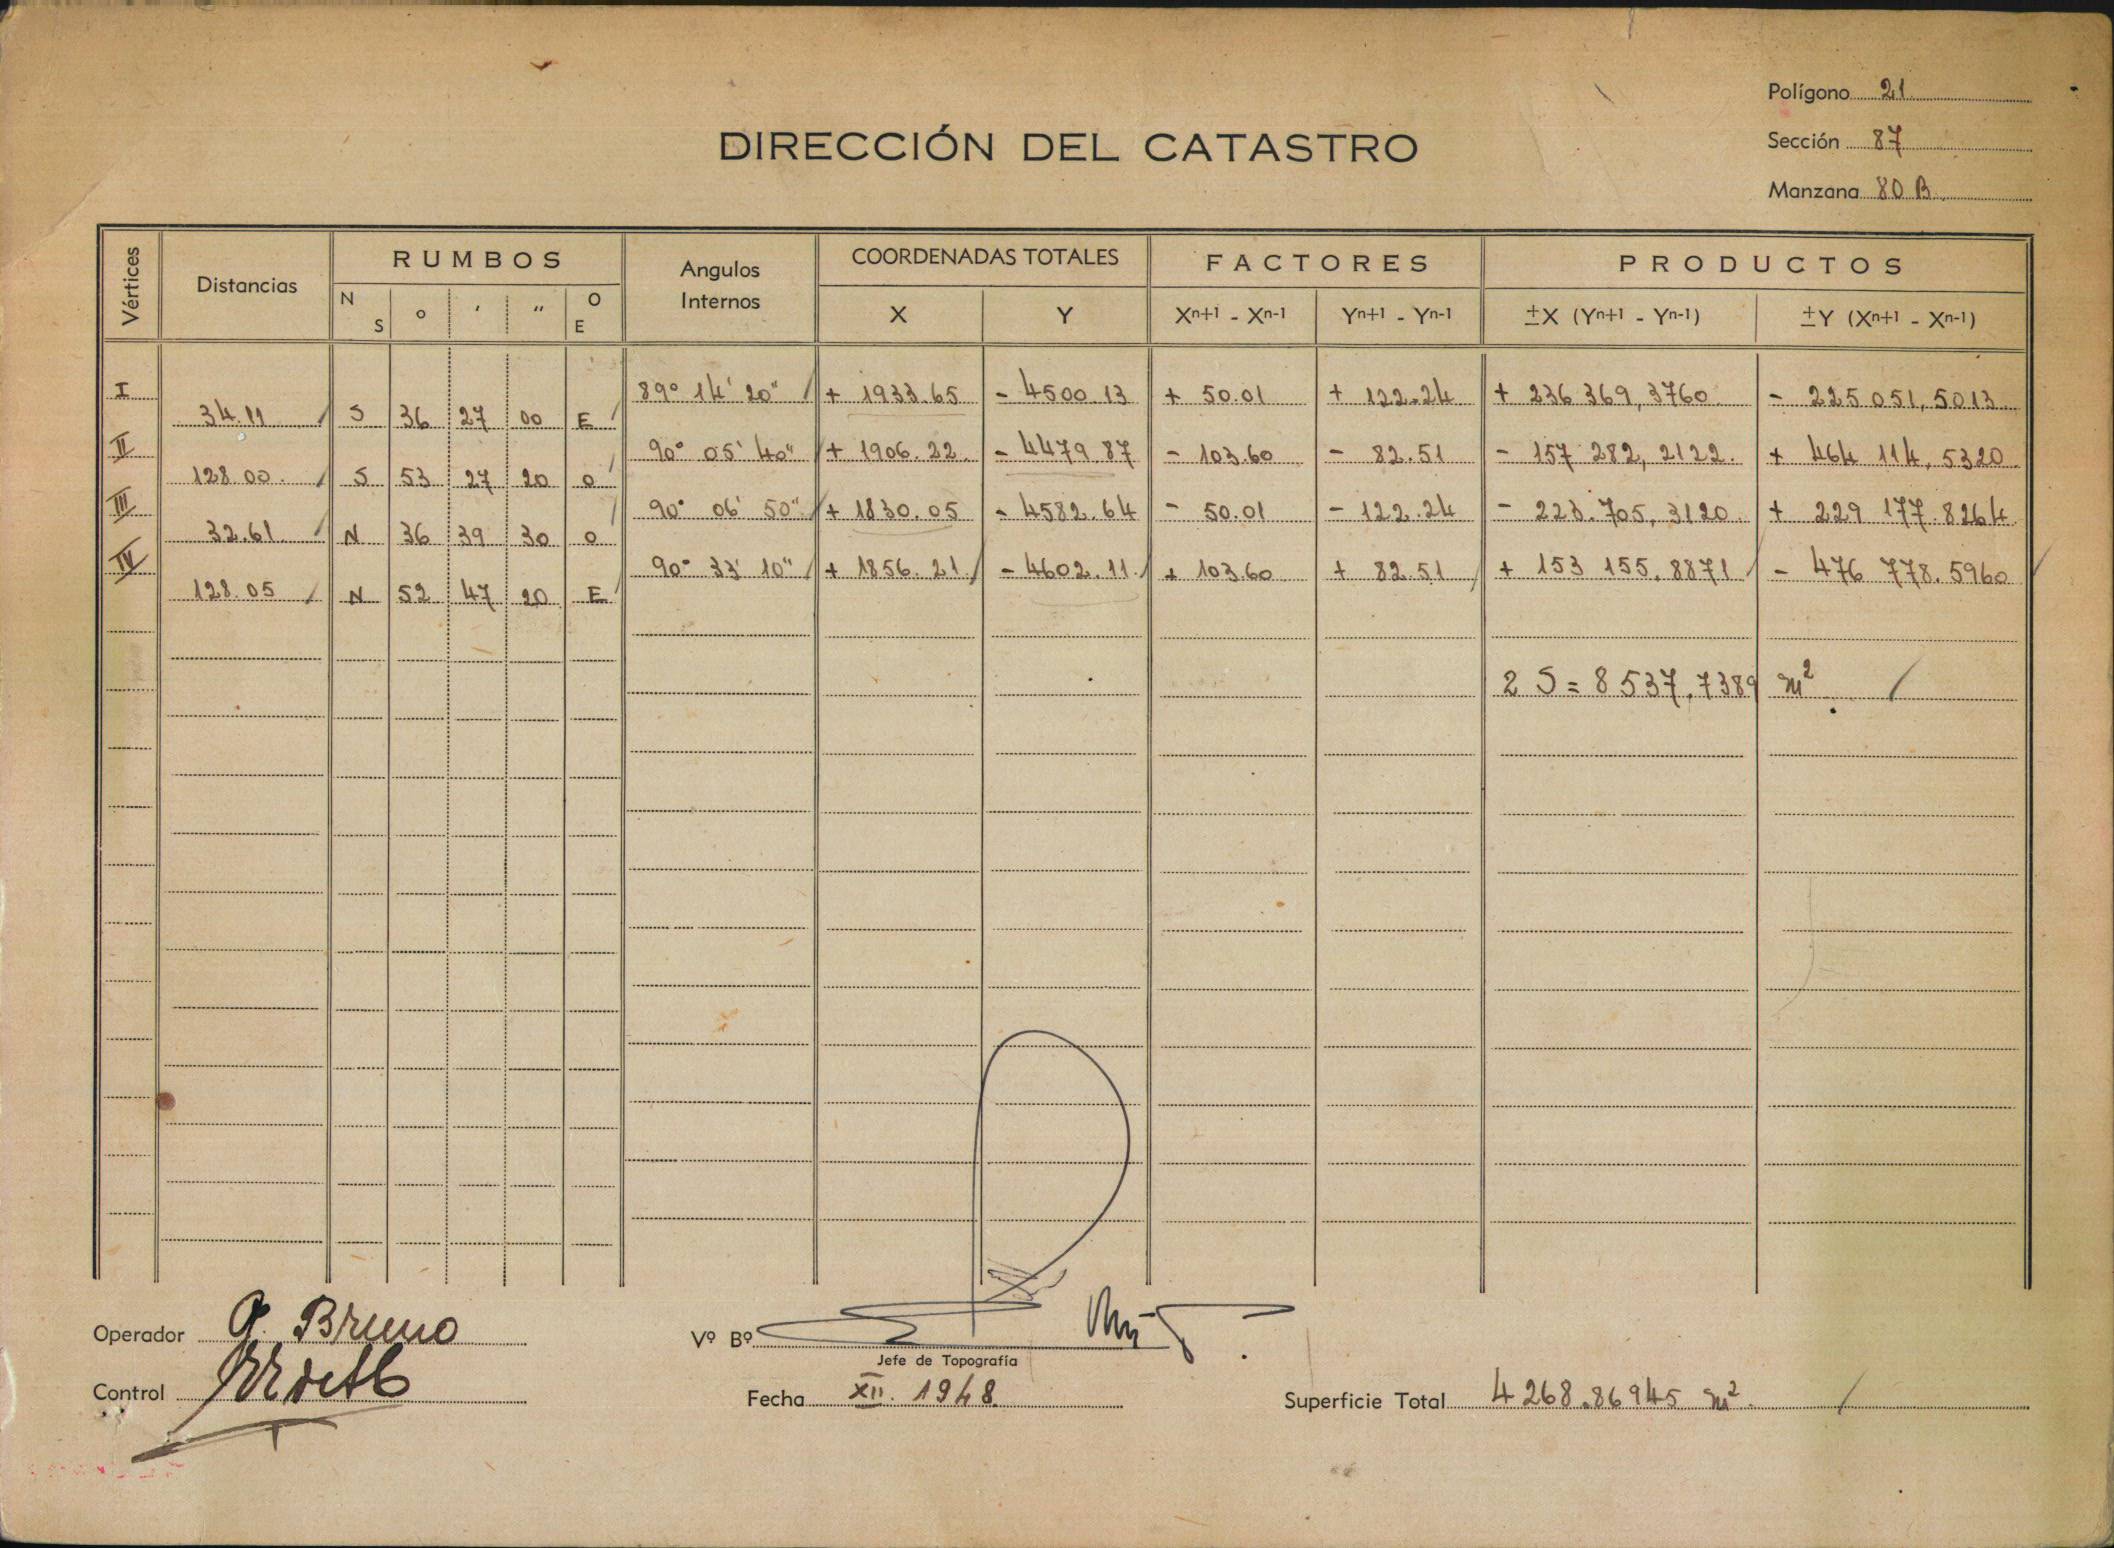 Polígono 21
Sección 87
Manzana 80 B
DIRECCIÓN DEL CATASTRO
Vértices Distancias RUMBOS Angulos Internos COORDENADAS TOTALES FACTORES PRODUCTOS
N S ° ' " O E X Y Xn+1 - Xn-1 Yn+1 - Yn-1 ±X (Yn+1 - Yn-1) ±Y (Xn+1 - Xn-1)
I 89° 14' 20" + 1933.65 - 4500.13 + 50.01 + 122.24 + 236 369,3760 - 225 051,5013
34.11 S 36 27 00 E
II 90° 05' 40" + 1906.22 - 4479.87 - 103.60 - 82.51 - 157 282,2122 + 464 114,5320
128.00 S 53 27 20 O
III 90° 06' 50" + 1830.05 - 4582.64 - 50.01 - 122.24 - 223.705,3120 + 229 177.8264
32.61 N 36 39 30 O
IV 90° 33' 10" + 1856.21 - 4602.11 + 103.60 + 82.51 + 153 155.8871 - 476 778.5960
128.05 N 52 47 20 E
2 S = 8537,7389 m²
Operador Bruno
Vº Bº
Jefe de Topografía
Control
Fecha XII. 1948.
Superficie Total 4268.86945 m²